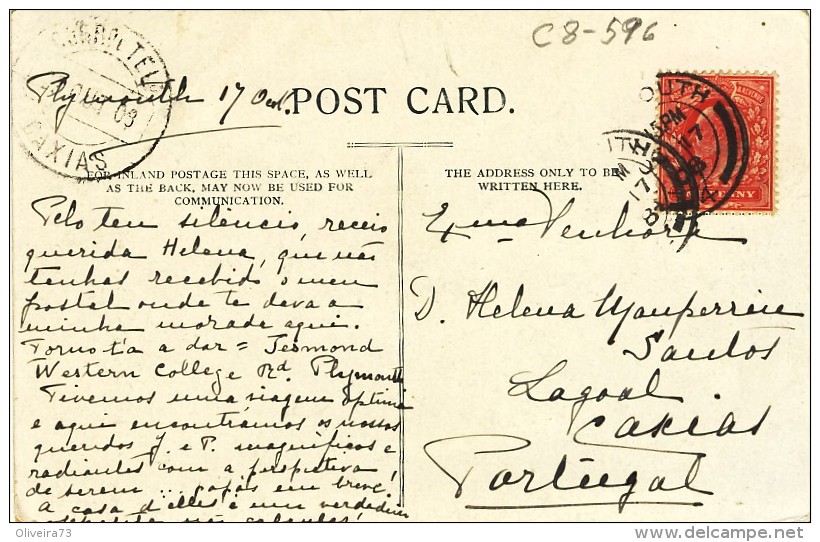 C8-596
CAXIAS
Plymouth 17 Oct.
POST CARD.
FOR INLAND POSTAGE THIS SPACE, AS WELL
AS THE BACK, MAY NOW BE USED FOR
COMMUNICATION.
THE ADDRESS ONLY TO BE
WRITTEN HERE.
Pelo teu silêncio, receio
querida Helena, que não
tenhas recebido o meu
postal onde te dava a
minha morada aqui.
Torno t'a a dar = Jesmond
Western College Rd. Plymouth
Tivemos uma viagem optima
e aqui encontrámos os nossos
queridos J. e P. magnificos e
radiantes com a perspetiva
de serem ... papás em breve!
A casa d'elles é um verdadeiro
Exma Senhora
D. Helena
Santos
Lagoal
Caxias
Portugal
Oliveira73
www.delcampe.net